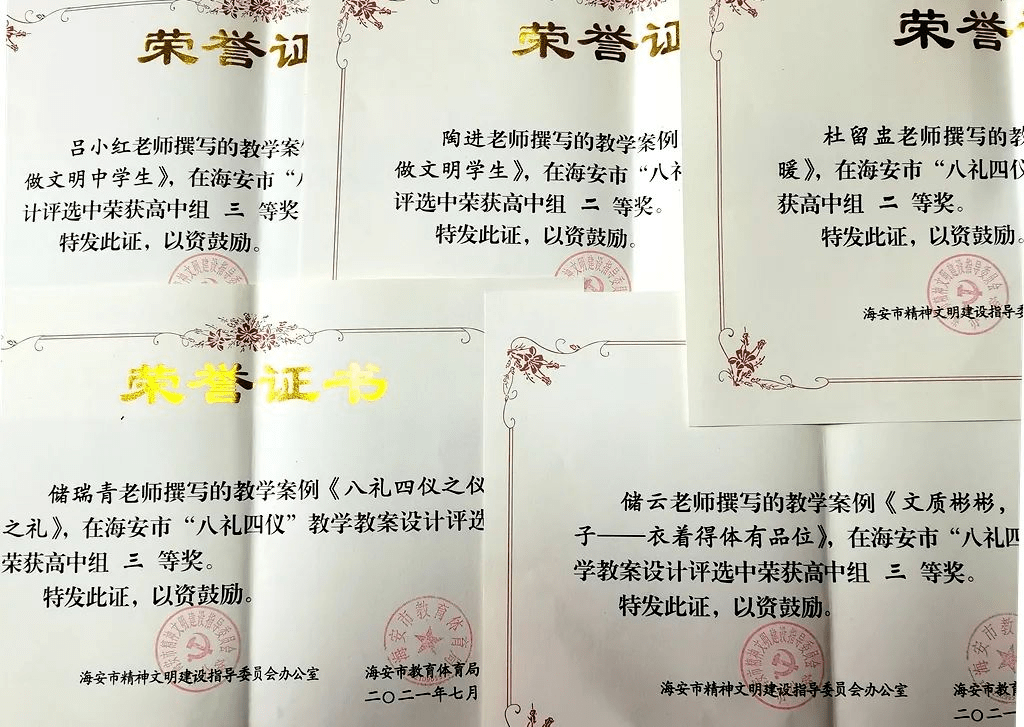 荣誉证
吕小红老师撰写的教学案
做文明中学生》，在海安市“八
计评选中荣获高中组 三 等奖
特发此证，以资鼓励。
荣誉证
陶进老师撰写的教学案例
做文明学生》，在海安市“八礼
评选中荣获高中组 二 等奖。
特发此证，以资鼓励。
荣誉
杜留盅老师撰写的教
暖》，在海安市“八礼四仪
获高中组 二 等奖。
特发此证，以资鼓励。
海安市精神文明建设指导委
荣誉证书
储瑞青老师撰写的教学案例《八礼四仪之仪
之礼》，在海安市“八礼四仪”教学教案设计评选
荣获高中组 三 等奖。
特发此证，以资鼓励。
海安市精神文明建设指导委员会办公室
海安市教育体育局
二〇二一年七月
储云老师撰写的教学案例《文质彬彬，
子——衣着得体有品位》，在海安市“八礼四
学教案设计评选中荣获高中组 三 等奖。
特发此证，以资鼓励。
海安市精神文明建设指导委员会办公室
海安市教育
二〇二一